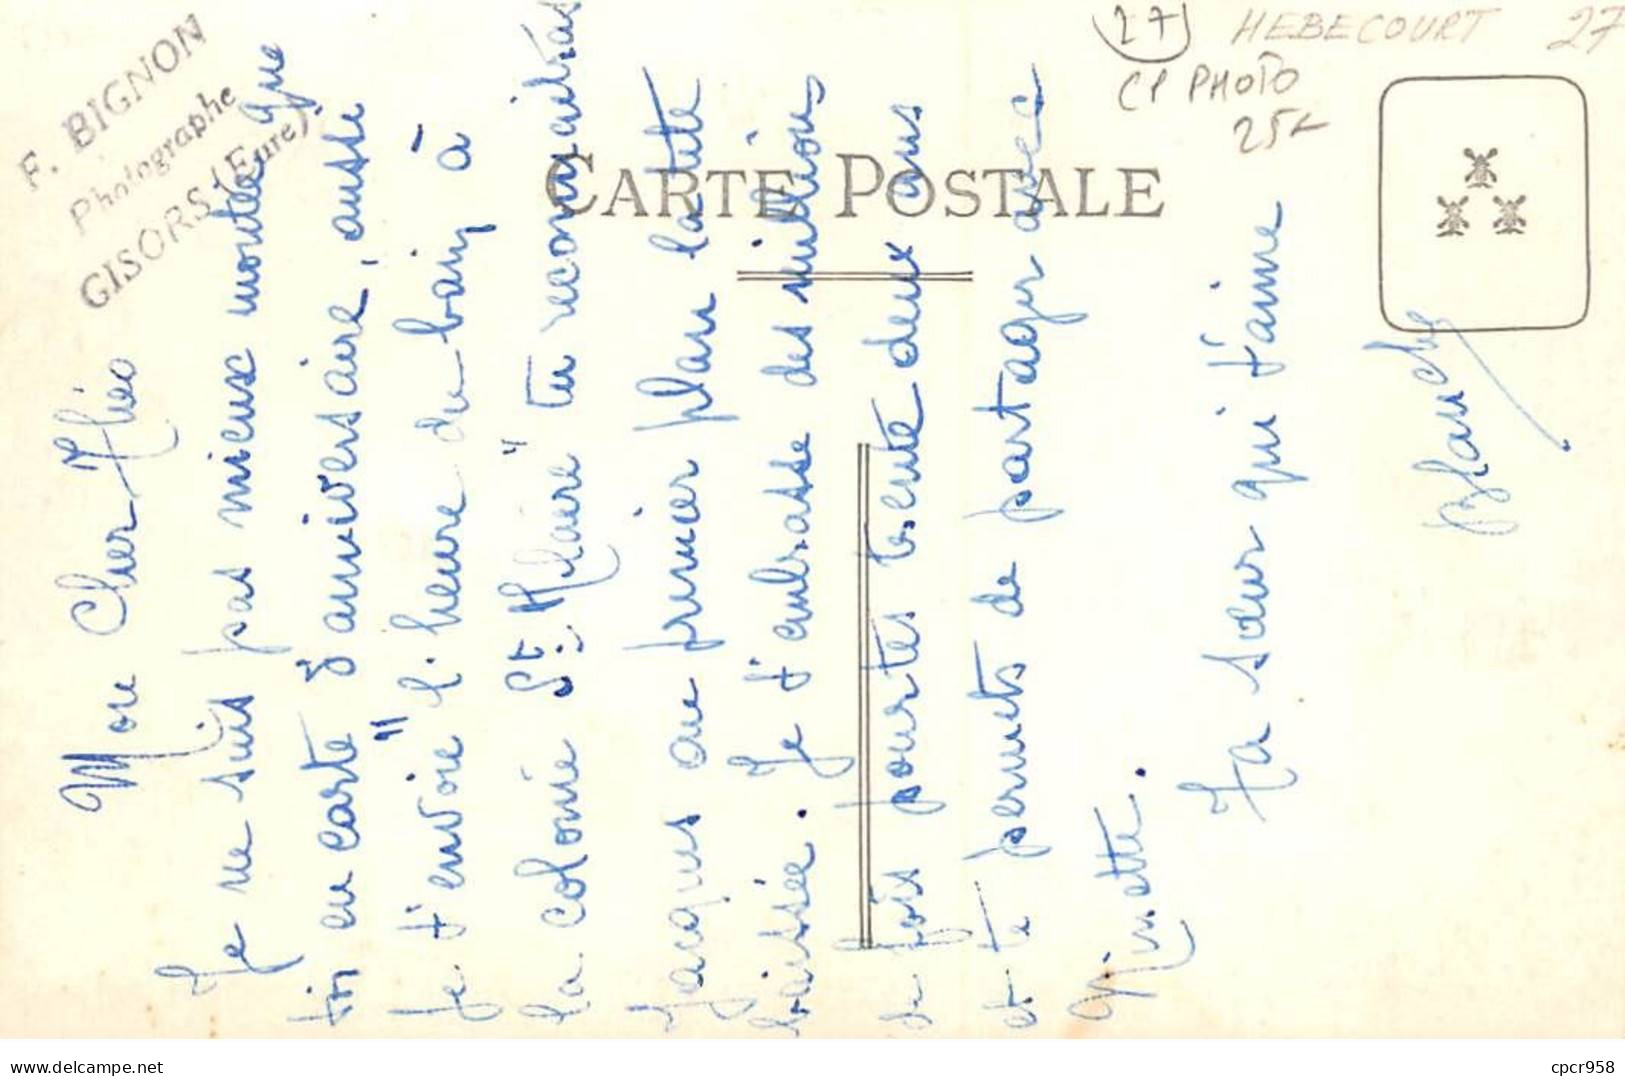 F. BIGNON
Photographe
GISORS (Eure)
(27) HEBECOURT 27
CP PHOTO
25
CARTE POSTALE
Mon cher Théo
Je ne suis pas mieux montée que
toi en carte d'anniversaire, aussi
je t'envoie "l'heure du bain à
la colonie St Hilaire" tu reconnaitras
Jacques au premier plan la tête
baissée. Je t'embrasse des millions
de fois pour tes trente deux ans
et te permets de partager avec
Minette.
Ta sœur qui t'aime
Blanche
cpcr958